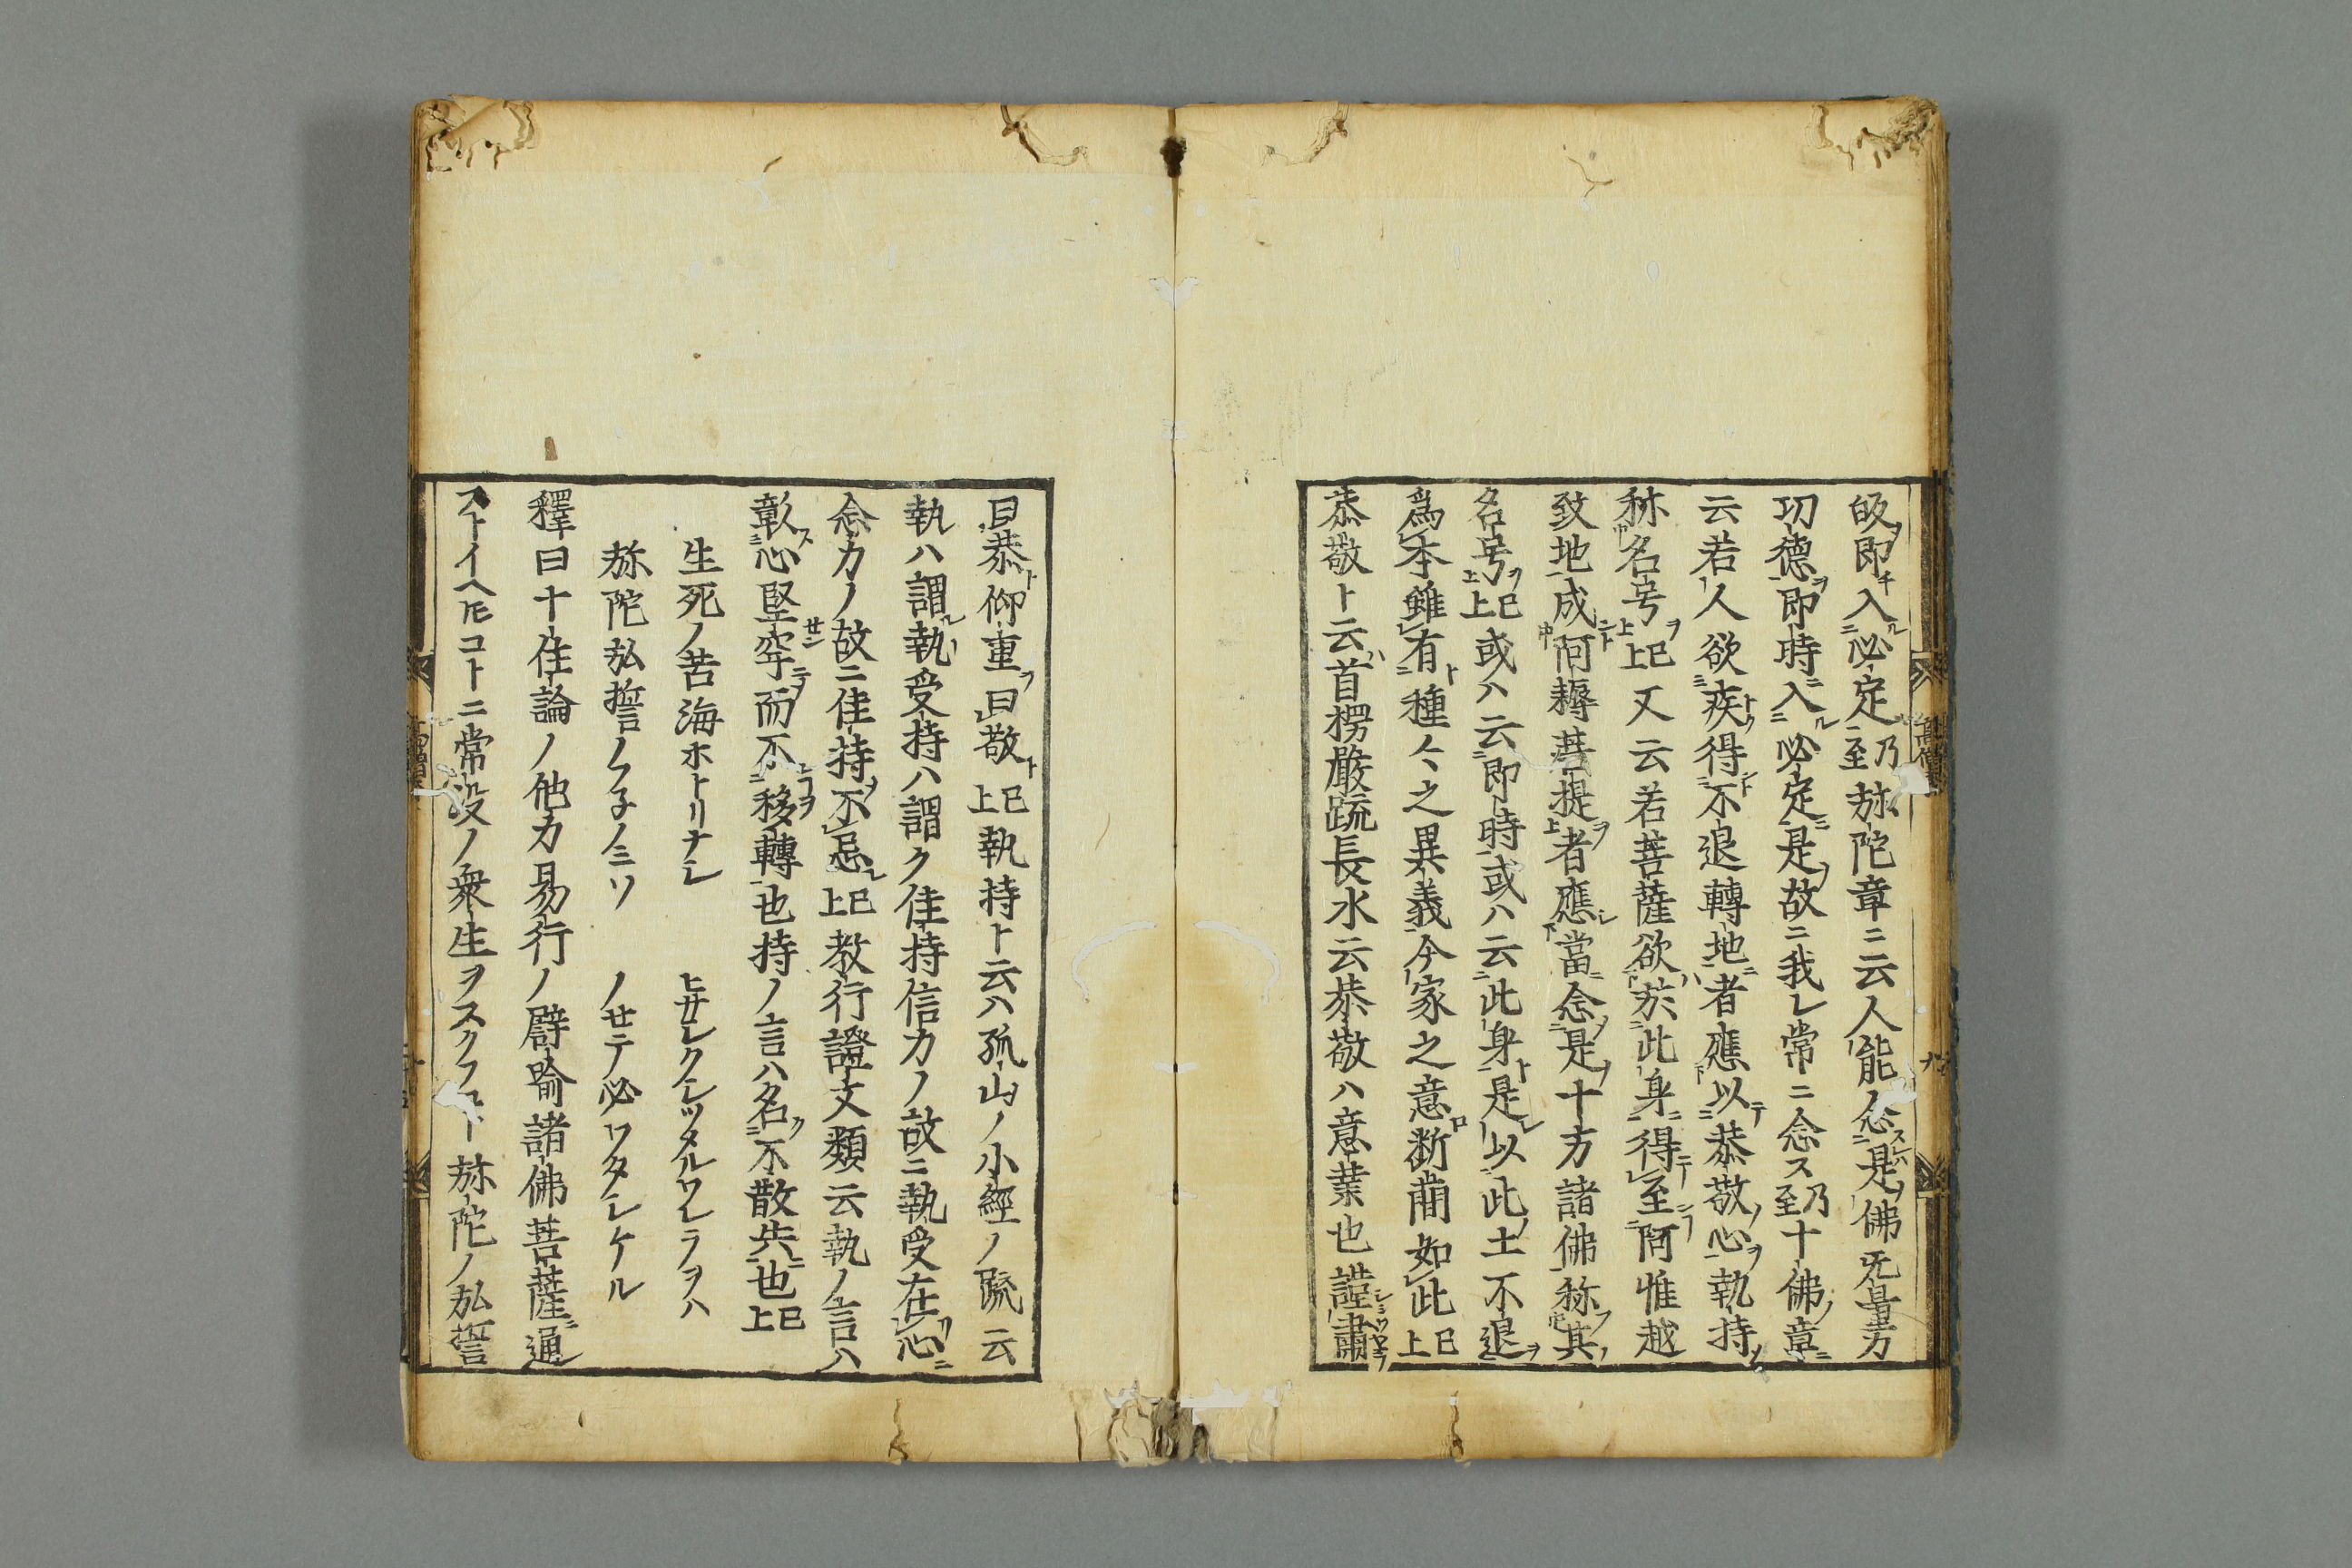 皈即入必定乃至弥陀章ニ云人能念是佛无量力
功德即時入必定是故ニ我レ常ニ念ス乃至十佛章
云若人欲疾得不退轉地者應以恭敬心執持
称名号已上又云若菩薩欲於此身得至阿惟越
致地成阿耨菩提者應當念是十方諸佛称其
名号已上或ハ云即時或ハ云此身是以此土不退
爲本雖有種々之異義今家之意断簡如此已上
恭敬ト云首楞嚴疏長水云恭敬ハ意業也謹肅
曰恭仰重曰敬已上執持ト云ハ孤山ノ小經ノ疏云
執ハ謂執受持ハ謂ク住持信力ノ故ニ執受在心
念力ノ故ニ住持不忘已上教行證文類云執ノ言ハ
彰心堅牢而不移轉也持ノ言ハ名不散失也已上
生死ノ苦海ホトリナシ　ヒサシクシツメルワレラヲハ
弥陀弘誓ノフ子ノミソ　ノセテ必ワタシケル
釋曰十住論ノ他力易行ノ譬喩諸佛菩薩通
ストイヘ𪜈コトニ常没ノ衆生ヲスクフコト弥陀ノ弘誓